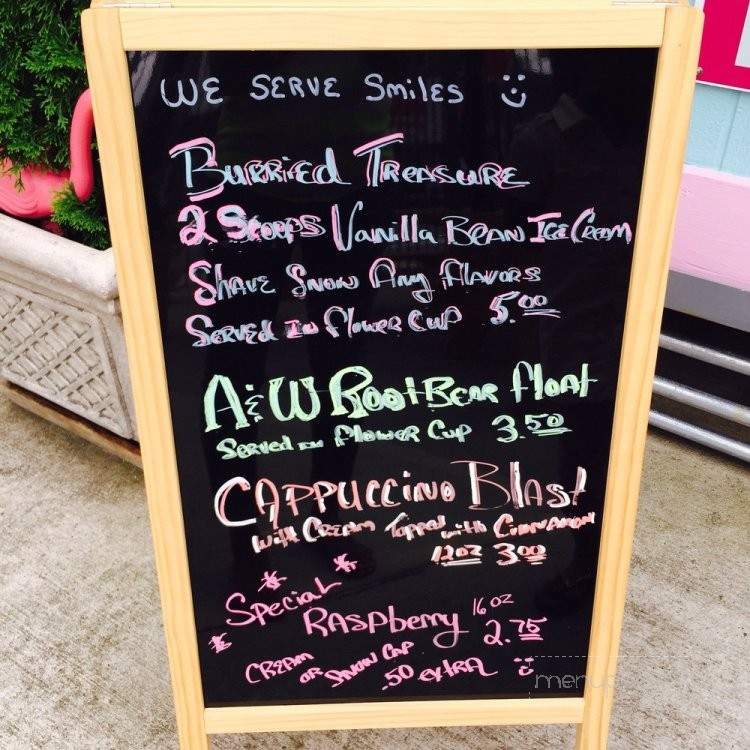 WE SERVE SmileS
BURRiEd TREASURE
2 Scoops Vanilla BEAN ICE CREAM
Shave Snow Any FlAVORS
SERVEd IN FlowER CuP 5.00
A&W RootBEAR Float
Served in FlowER Cup 3.50
CAPPUCCiNO BlASt
with CREAM Topped with CiNNAMON
12oz 3.00
Special
RASPbERRy 16 OZ 2.75
CREAM OR SNOW CAP
.50 extRA
menupix